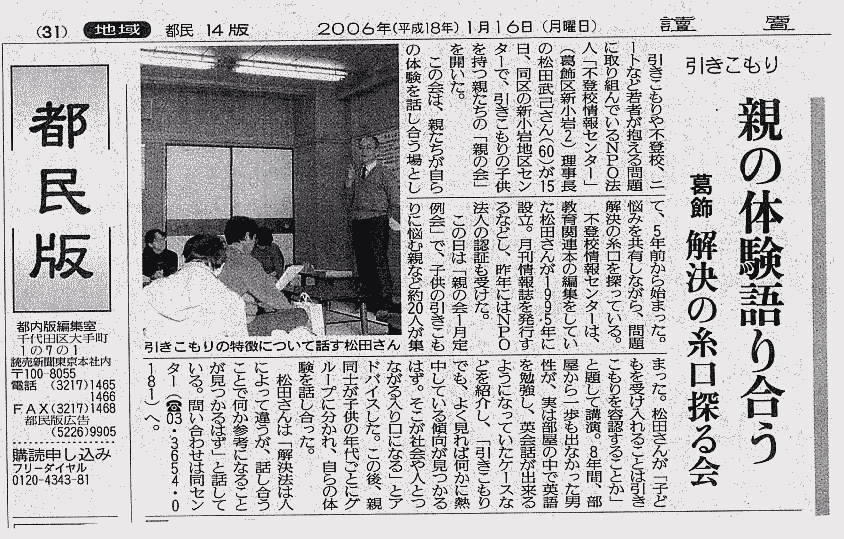 (31) 地域 都民 14版 2006年(平成18年)1月16日(月曜日) 讀賣
引きこもり
親の体験語り合う
葛飾 解決の糸口探る会
引きこもりや不登校、ニ
ートなど若者が抱える問題
に取り組んでいるNPO法
人「不登校情報センター」
(葛飾区新小岩2)理事長
の松田武己さん(60)が15
日、同区の新小岩地区セン
ターで、引きこもりの子供
を持つ親たちの「親の会」
を開いた。
この会は、親たちが自ら
の体験を話し合う場とし
て、5年前から始まった。
悩みを共有しながら、問題
解決の糸口を探っている。
不登校情報センターは、
教育関連本の編集をしてい
た松田さんが1995年に
設立。月刊情報誌を発行す
るなどし、昨年にはNPO
法人の認証も受けた。
この日は「親の会1月定
例会」で、子供の引きこも
りに悩む親など約20人が集
まった。松田さんが「子ど
もを受け入れることは引き
こもりを容認することか」
と題して講演。8年間、部
屋から一歩も出なかった男
性が、実は部屋の中で英語
を勉強し、英会話が出来る
ようになっていたケースな
どを紹介し、「引きこもり
でも、よく見れば何かに熱
中している傾向が見つかる
はず。そこが社会や人とつ
ながる入り口になる」とア
ドバイスした。この後、親
同士が子供の年代ごとにグ
ループにわかれ、自らの体
験を話し合った。
松田さんは「解決法は人
によって違うが、話し合う
ことで何か参考になること
が見つかるはず」と話して
いる。問い合わせは同セン
ター(☎03・3654・0
181)へ。
引きこもりの特徴について話す松田さん
都民版
都内版編集室
千代田区大手町
1の7の1
読売新聞東京本社内
〒100-8055
電話 (3217)1465
1466
FAX(3217)1468
都民版広告
(5226)9905
購読申し込み
フリーダイヤル
0120-4343-81